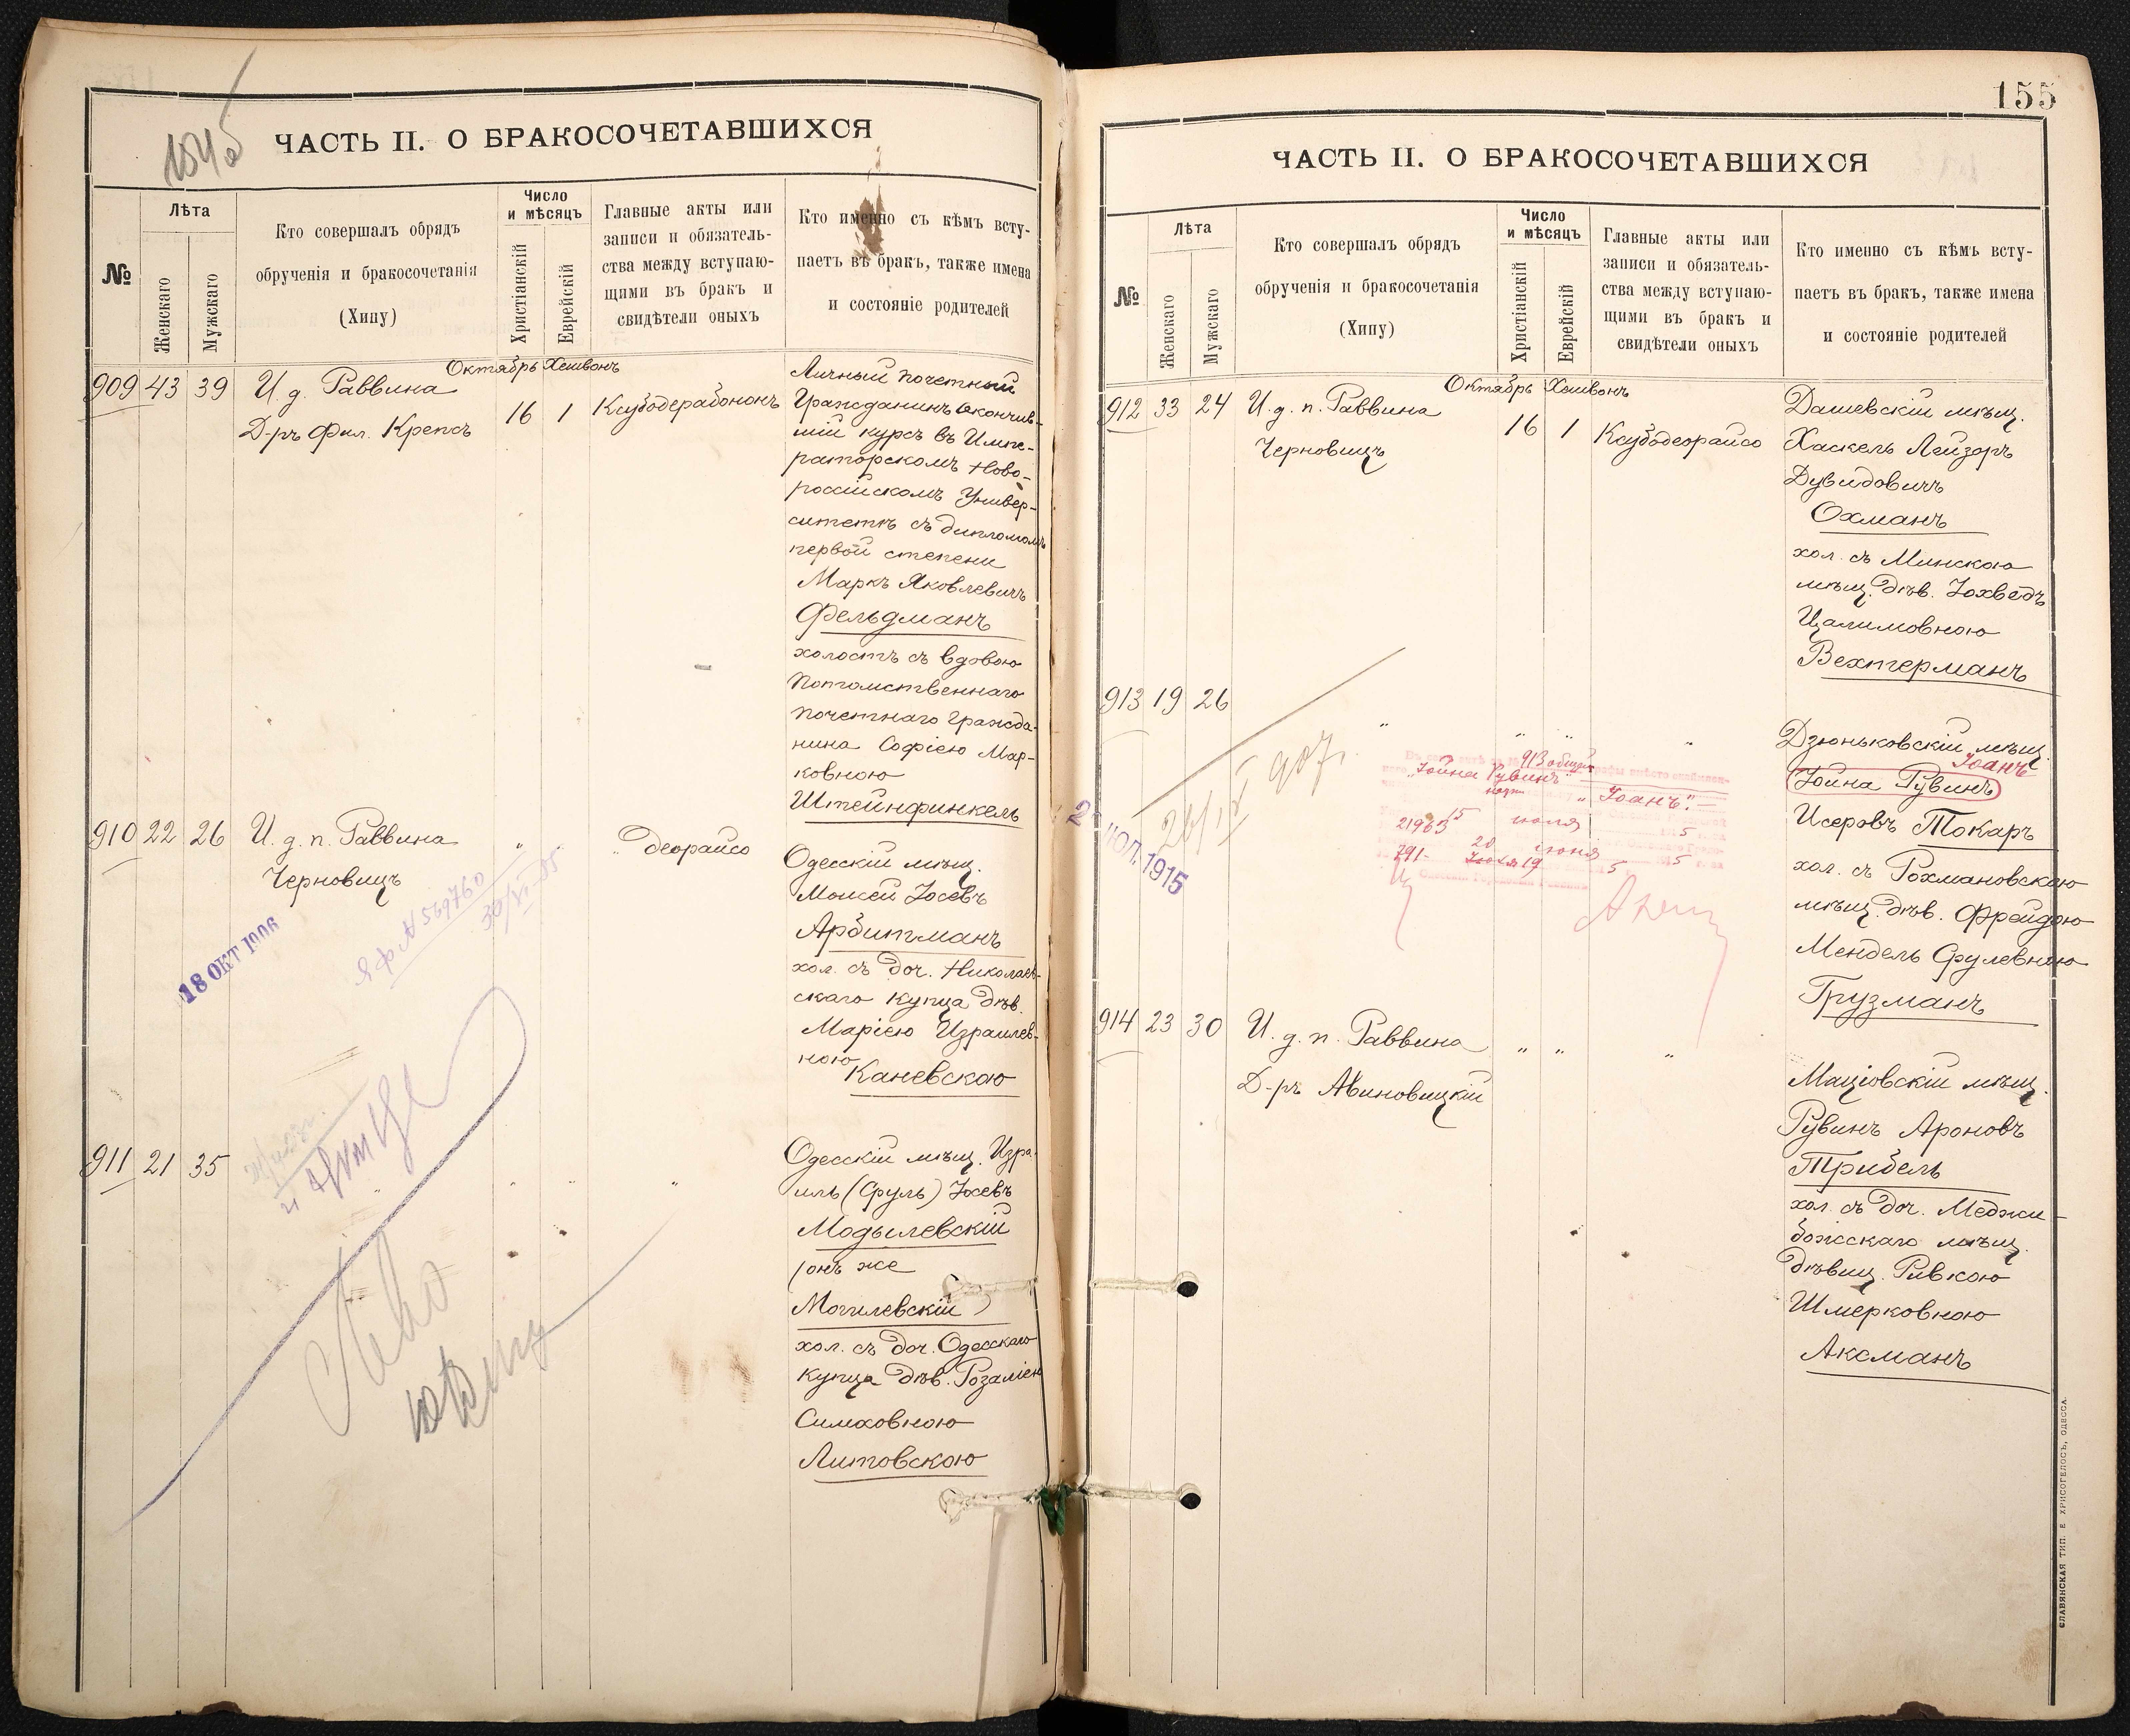 1045
ЧАСТЬ II. О БРАКОСОЧЕТАВШИХСЯ
№
Лѣта
Женскаго
Мужскаго
Кто совершалъ обрядъ
обрученія и бракосочетанія
(Хипу)
Число
и мѣсяцъ
Христіанскій
Еврейскій
Главные акты или
записи и обязатель-
ства между вступаю-
щими въ бракъ и
свидѣтели оныхъ
Кто именно съ кѣмъ всту-
паетъ въ бракъ, также имена
и состояніе родителей
Октябрь Хешвонъ
909 43 39 И. д. Раввина
Д-ръ Фил. Крепсъ
16 1 Ксубодерабононъ
Личный почетный
Гражданинъ окончив-
шій курсъ въ Импе-
раторскомъ Ново-
россійскомъ Универ-
ситетѣ съ дипломомъ
первой степени
Маркъ Яковлевичъ
Фельдманъ
холостъ съ вдовою
Потомственнаго
почетнаго Гражда-
нина Софіею Мар-
ковною
Штейнфинкель
910 22 26 И. д. п. Раввина
Черновицъ
" " деорайсо
Одесскій мѣщ.
Моисей Іосевъ
Арбитманъ
хол. съ доч. Николаев-
скаго купца дѣв.
Маріею Израилев-
ною
Каневскою
18 ОКТ 1906
911 21 35 " " " "
Одесскій мѣщ. Изра-
иль (Сруль) Іосевъ
Модылевскій
(онъ же
Могилевскій)
хол. съ доч. Одесскаго
купца дѣв. Розаліею
Симховною
Литовскою
155
ЧАСТЬ II. О БРАКОСОЧЕТАВШИХСЯ
№
Лѣта
Женскаго
Мужскаго
Кто совершалъ обрядъ
обрученія и бракосочетанія
(Хипу)
Число
и мѣсяцъ
Христіанскій
Еврейскій
Главные акты или
записи и обязатель-
ства между вступаю-
щими въ бракъ и
свидѣтели оныхъ
Кто именно съ кѣмъ всту-
паетъ въ бракъ, также имена
и состояніе родителей
Октябрь Хешвонъ
912 33 24 И. д. п. Раввина
Черновицъ
16 1 Ксубодеорайсо
Дашевскій мѣщ.
Хаскель Лейзоръ
Дувидовичъ
Охманъ
хол. съ Минскою
мѣщ. дѣв. Іохведъ
Цалимовною
Вехтерманъ
913 19 26 " " " "
Дзюньковскій мѣщ.
"Іоанъ"
Іойна Рувинъ
Исеровъ Токаръ
хол. съ Рохмановскою
мѣщ. дѣв. Фрейдою
Мендель Срулевною
Грузманъ
"Іойна Рувинъ"
"Іоанъ".
21963 15 іюля 5
791 20 іюня 5
ІЮЛ. 1915
914 23 30 И. д. п. Раввина
Д-ръ Авиновицкій
" " "
Маціовскій мѣщ.
Рувинъ Ароновъ
Трибель
хол. съ доч. Меджи-
божскаго мѣщ.
дѣвиц. Ривкою
Шмерковною
Аксманъ
СЛАВЯНСКАЯ ТИП. Е. ХРИСОГЕЛОСЪ, ОДЕССА.